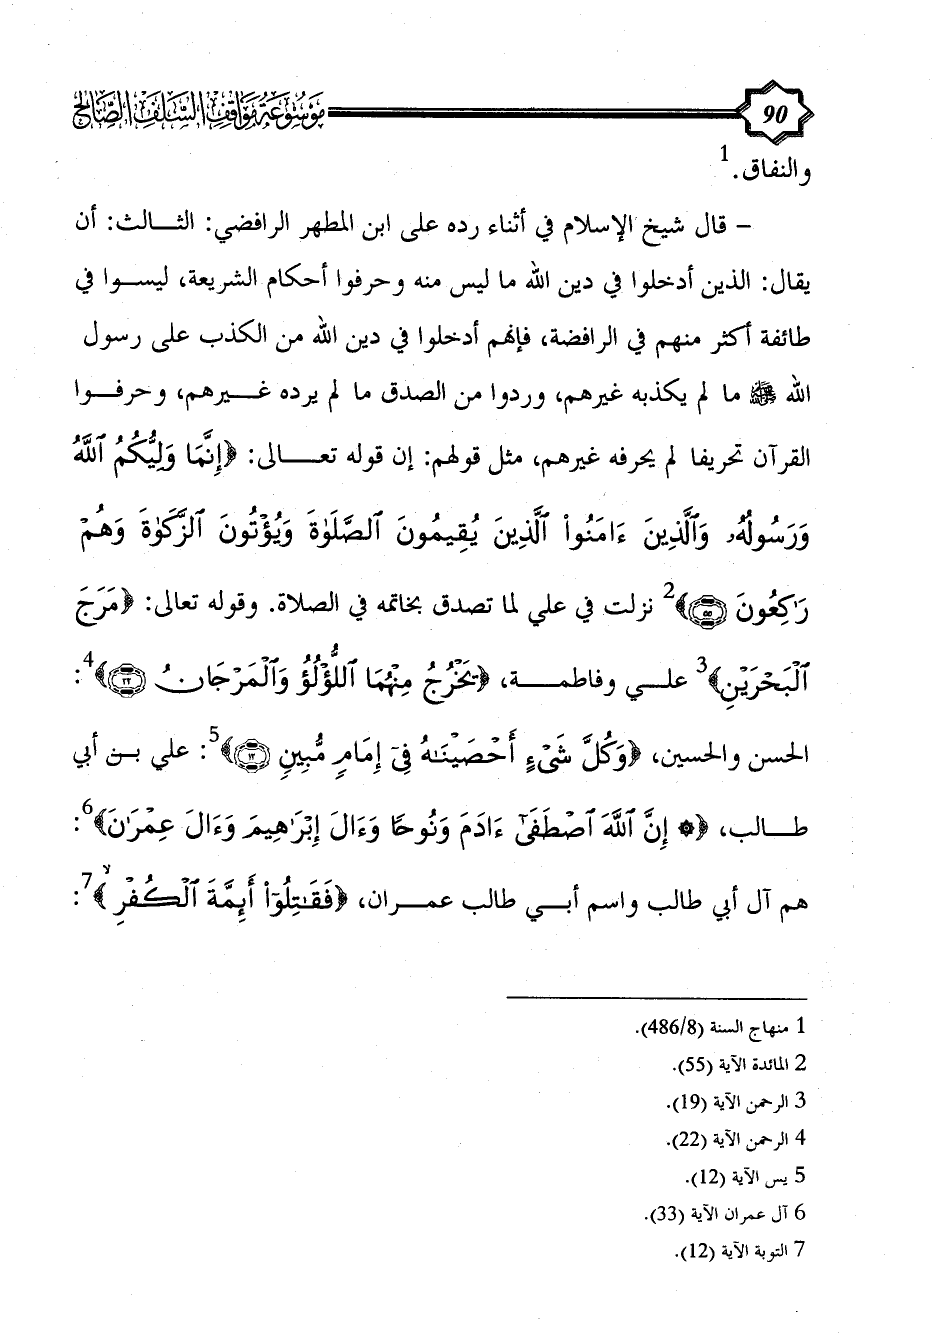 90 موسوعة مواقف السلف الصالح
والنفاق.1
– قال شيخ الإسلام في أثناء رده على ابن المطهر الرافضي: الثـــالث: أن
يقال: الذين أدخلوا في دين الله ما ليس منه وحرفوا أحكام الشريعة، ليســوا في
طائفة أكثر منهم في الرافضة، فإنهم أدخلوا في دين الله من الكذب على رسول
الله ﷺ ما لم يكذبه غيرهم، وردوا من الصدق ما لم يرده غــيرهم، وحرفــوا
القرآن تحريفا لم يحرفه غيرهم، مثل قولهم: إن قوله تعـــالى: ﴿إِنَّمَا وَلِيُّكُمُ ٱللَّهُ
وَرَسُولُهُۥ وَٱلَّذِينَ ءَامَنُواْ ٱلَّذِينَ يُقِيمُونَ ٱلصَّلَوٰةَ وَيُؤْتُونَ ٱلزَّكَوٰةَ وَهُمْ
رَٰكِعُونَ ٥٥﴾2 نزلت في علي لما تصدق بخاتمه في الصلاة. وقوله تعالى: ﴿مَرَجَ
ٱلْبَحْرَيْنِ﴾3 علـــي وفاطمـــة، ﴿يَخْرُجُ مِنْهُمَا ٱللُّؤْلُؤُ وَٱلْمَرْجَانُ ٢٢﴾4:
الحسن والحسين، ﴿وَكُلَّ شَىْءٍ أَحْصَيْنَـٰهُ فِىٓ إِمَامٍ مُّبِينٍ ١٢﴾5: علي بــن أبي
طـــالب، ﴿۞ إِنَّ ٱللَّهَ ٱصْطَفَىٰٓ ءَادَمَ وَنُوحًا وَءَالَ إِبْرَٰهِيمَ وَءَالَ عِمْرَٰنَ﴾6:
هم آل أبي طالب واسم أبــي طالب عمــران، ﴿فَقَـٰتِلُوٓاْ أَئِمَّةَ ٱلْكُفْرِ ۙ﴾7:
1 منهاج السنة (486/8).
2 المائدة الآية (55).
3 الرحمن الآية (19).
4 الرحمن الآية (22).
5 يس الآية (12).
6 آل عمران الآية (33).
7 التوبة الآية (12).